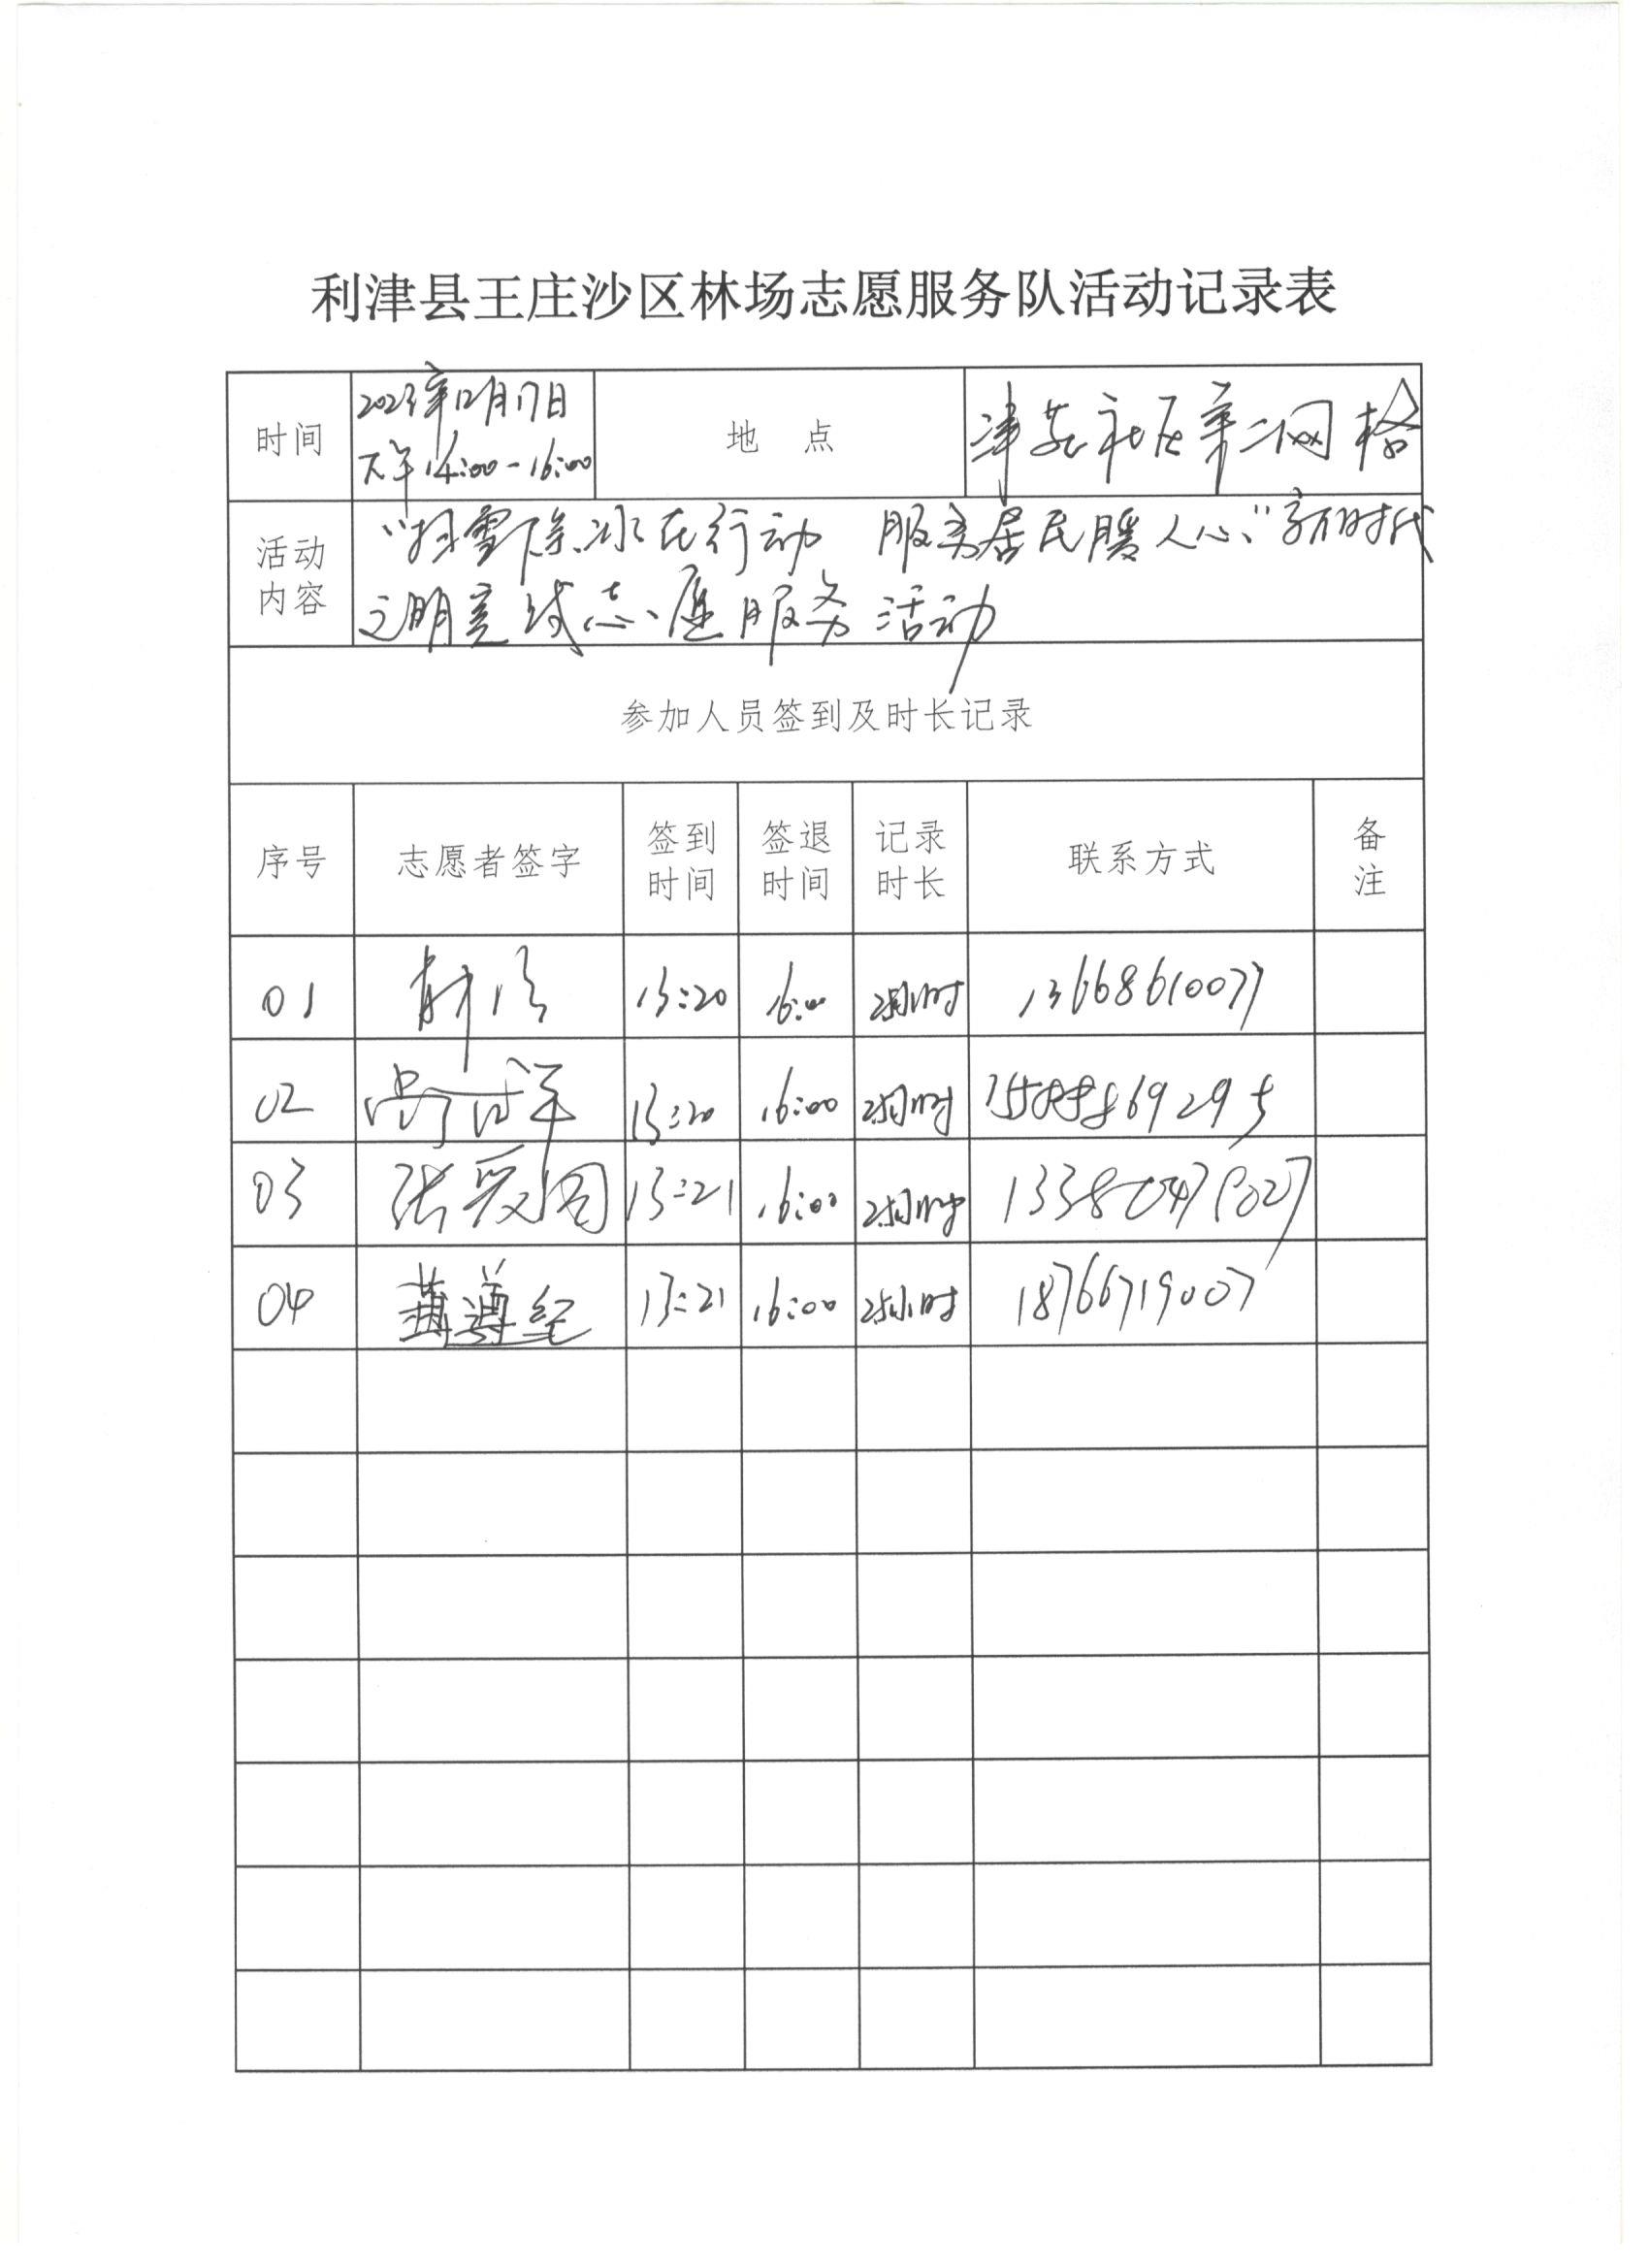 利津县王庄沙区林场志愿服务队活动记录表
时间 2023年12月17日 下午14:00-16:00 地 点 津苑社区第二网格
活动内容 "扫雪除冰在行动 服务居民暖人心"新时代
文明实践志愿服务活动
参加人员签到及时长记录
序号 志愿者签字 签到时间 签退时间 记录时长 联系方式 备注
01 13:20 16:00 小时 13668610077
02 13:20 16:00 小时
03 张爱国 13:21 16:00 小时
04 薄遵纪 13:21 16:00 2.5小时 18766719007